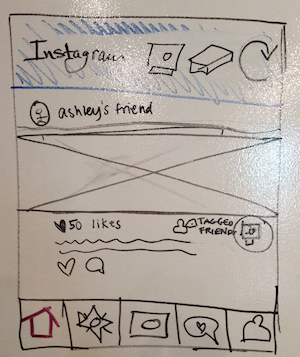 Instagram
ashley's friend
50 likes
TAGGED
FRIEND